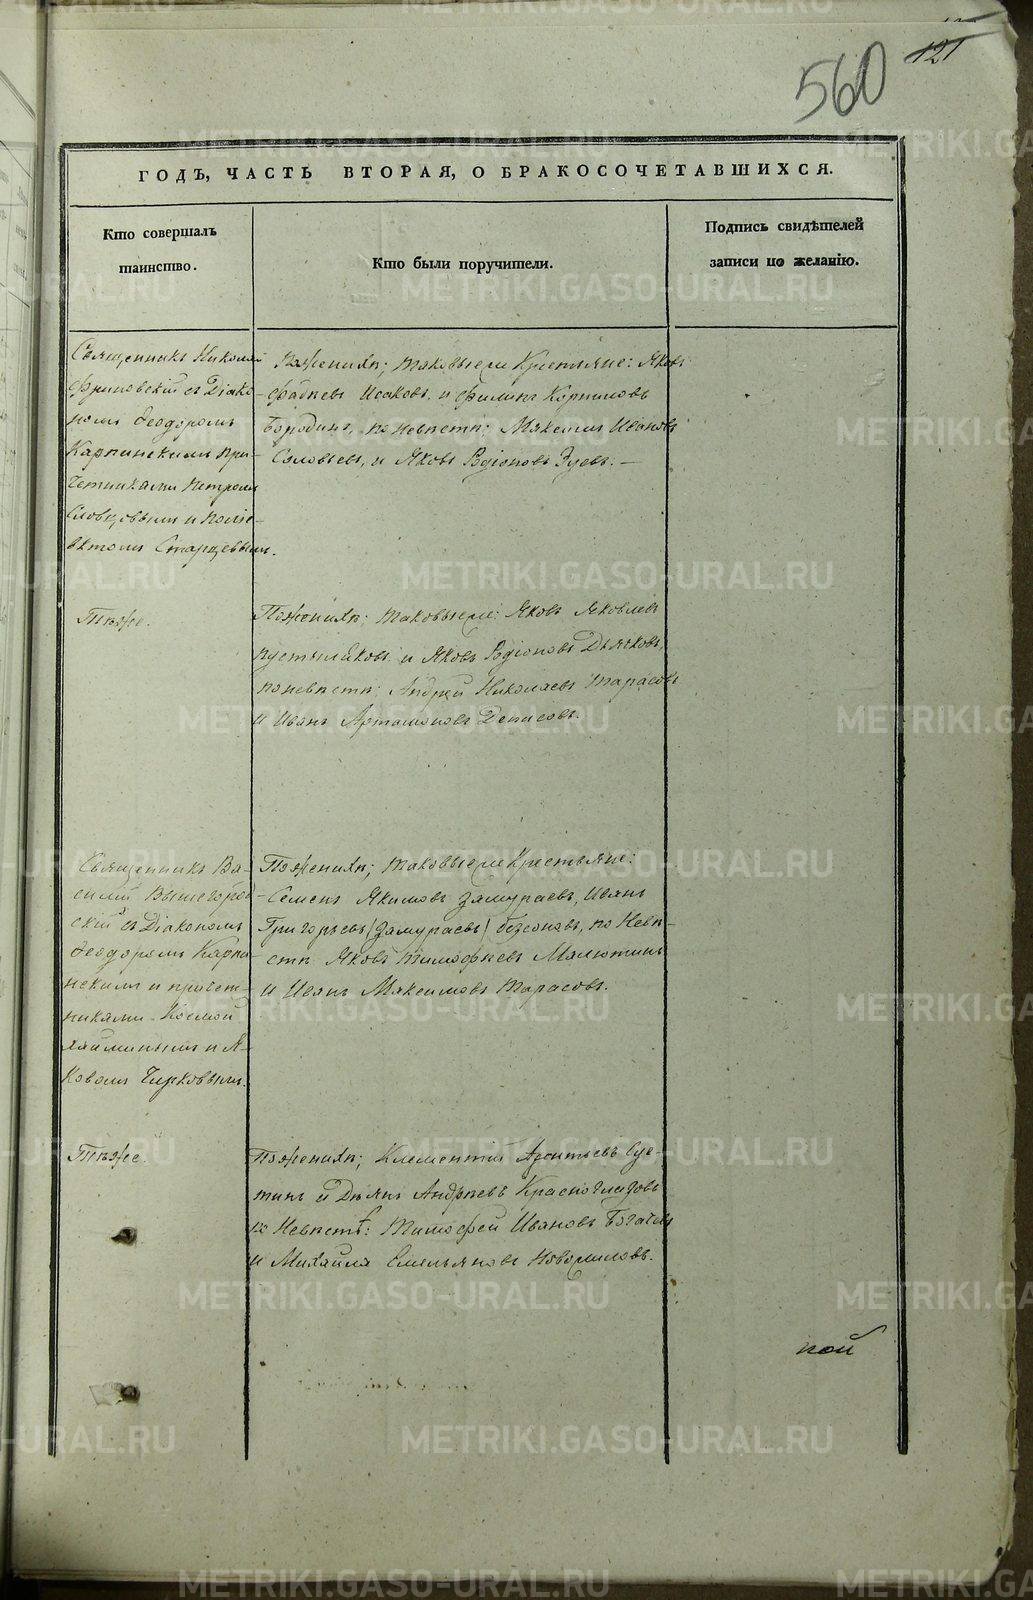 121
560
ГОДЪ, ЧАСТЬ ВТОРАЯ, О БРАКОСОЧЕТАВШИХСЯ.
Кто совершалъ
таинство.
Кто были поручители.
Подпись свидѣтелей
записи по желанію.
Священникъ Николай
съ Діако-
номъ Ѳеодоромъ
Карпинскимъ при-
четниками Петромъ
Словцовымъ и Поліе-
вктомъ Старцевымъ.
Пожених; таковыеже Крестьяне: Яковъ
Исаковъ, и Филипъ Корниловъ
Бородинъ, по невѣстѣ; Максимъ Ивановъ
Соловьевъ, и Яковъ Родіоновъ Зуевъ. —
Тѣже.
Поженихѣ; таковыеже: Яковъ Яковлевъ
и Яковъ Родіоновъ Дьячковъ,
поневѣстѣ; Андрей Николаевъ Тарасовъ
и Иванъ Артамоновъ Денисовъ.
Священникъ Ва-
силій Вышегород-
скій съ Діакономъ
Ѳеодоромъ Карпи-
нскимъ и причет-
никами Космой
и Я-
ковомъ Чирковымъ.
Поженихѣ; таковыеже Крестьяне:
Семенъ Якимовъ Замураевъ, Иванъ
Григорьевъ (Замураевъ) безсоновъ, по Невѣ-
стѣ Яковъ Тимофѣевъ Малютинъ
и Иванъ Максимовъ Тарасовъ.
Тѣже.
Поженихѣ; Климентій
и Андрѣевъ Красноглазовъ
по Невѣстѣ: Тимофей Ивановъ Богатовъ
и Михайла Емельяновъ
кой
METRIKI.GASO-URAL.RU